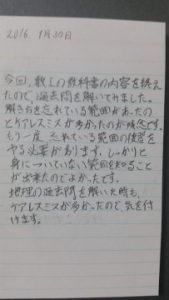 2016. 1月30日
今回、数Iの教科書の内容を終え
たので、過去問を解いてみました。
解き方を忘れている範囲があったの
とケアレスミスが多かったのが残念です。
もう一度 忘れている範囲の復習を
やる必要があります。しっかりと
身についていない範囲を知ること
が出来たのでよかったです。
地理の過去問を解いた時も、
ケアレスミスが多かったので、気を付
けます。